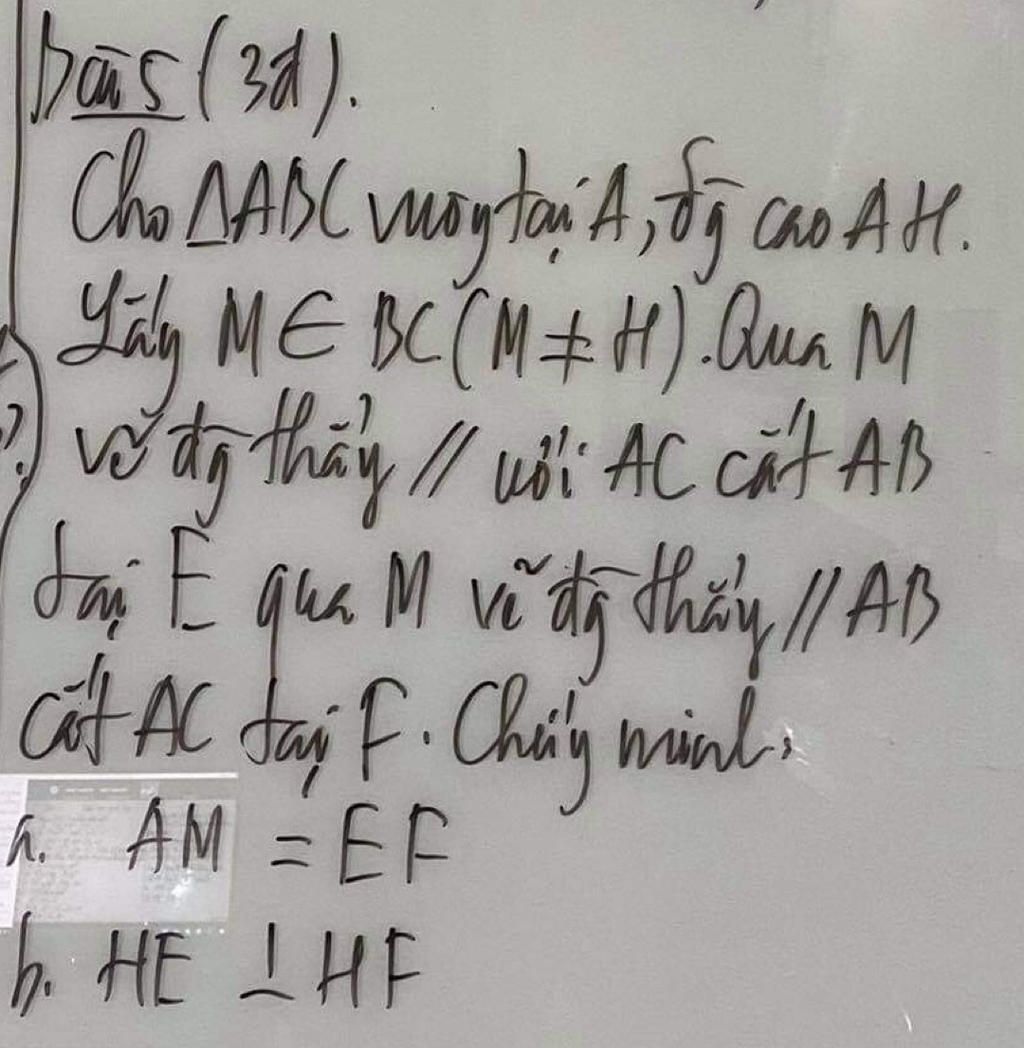 bài 5 (3đ).
Cho △ABC vuông tại A, đg cao AH.
Lấy M ∈ BC (M ≠ H). Qua M
vẽ đg thẳng // với AC cắt AB
tại E qua M vẽ đg thẳng // AB
cắt AC tại F. Chứng minh:
a. AM = EF
b. HE ⊥ HF